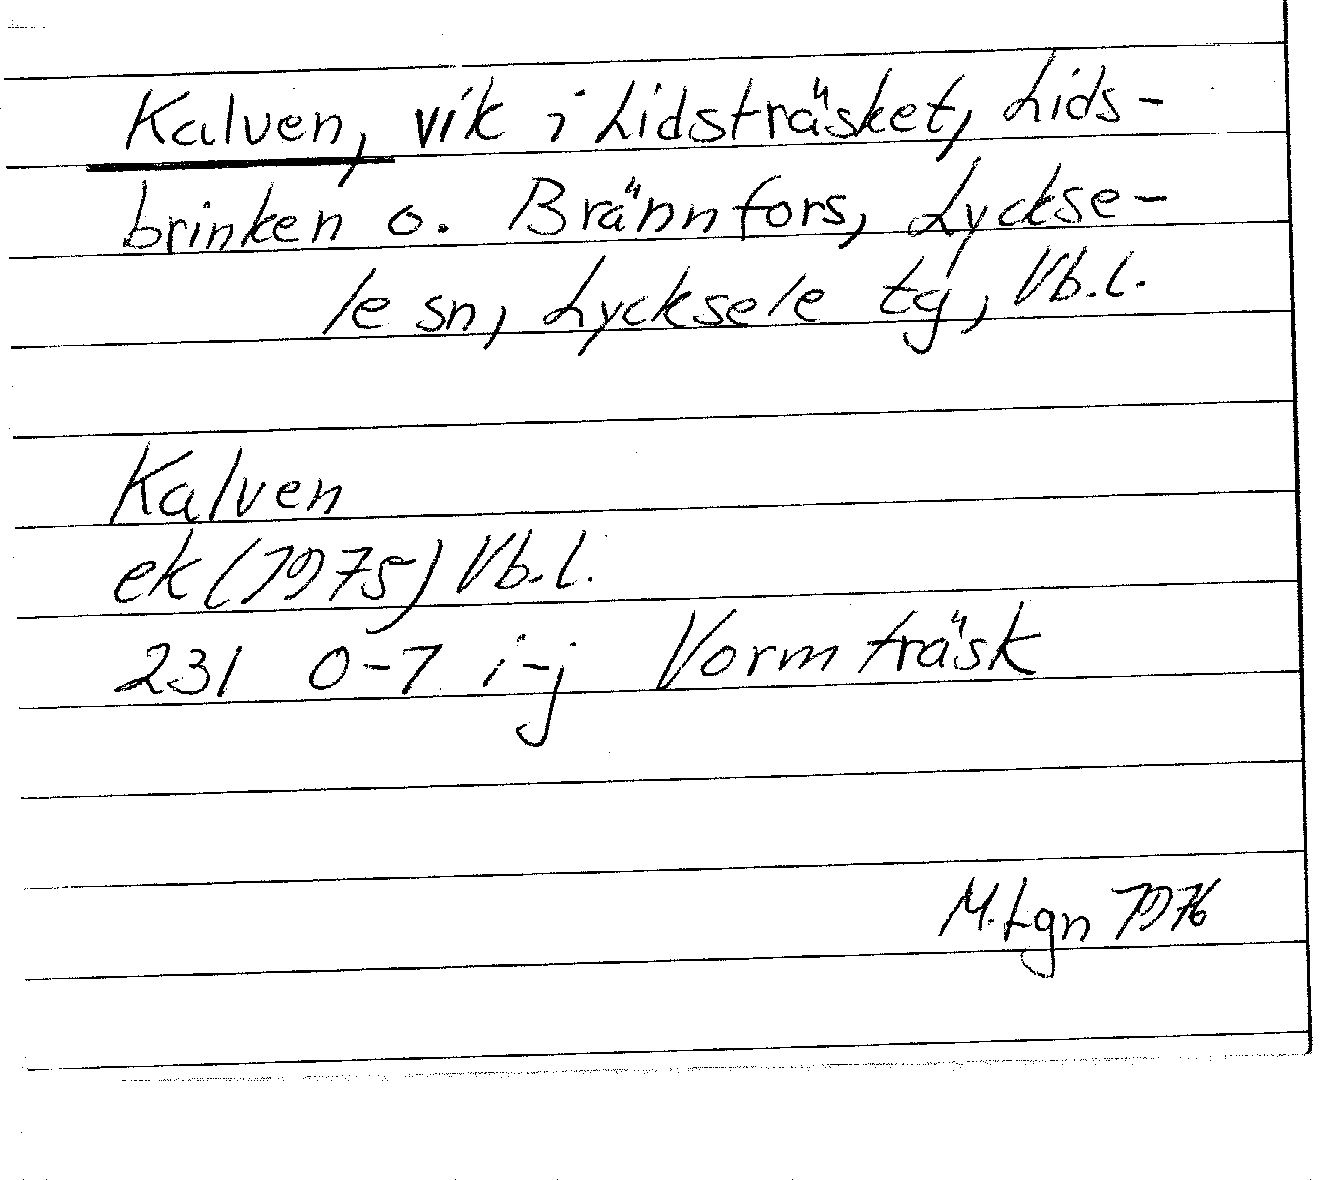 Kalven, vik i Lidsträsket, Lids-
brinken o. Brännfors, Lyckse-
le sn, Lycksele tg, Vb.l.
Kalven
ek (1975) Vb.l.
231 0-7 i-j Vormträsk
M. Lgn 1976